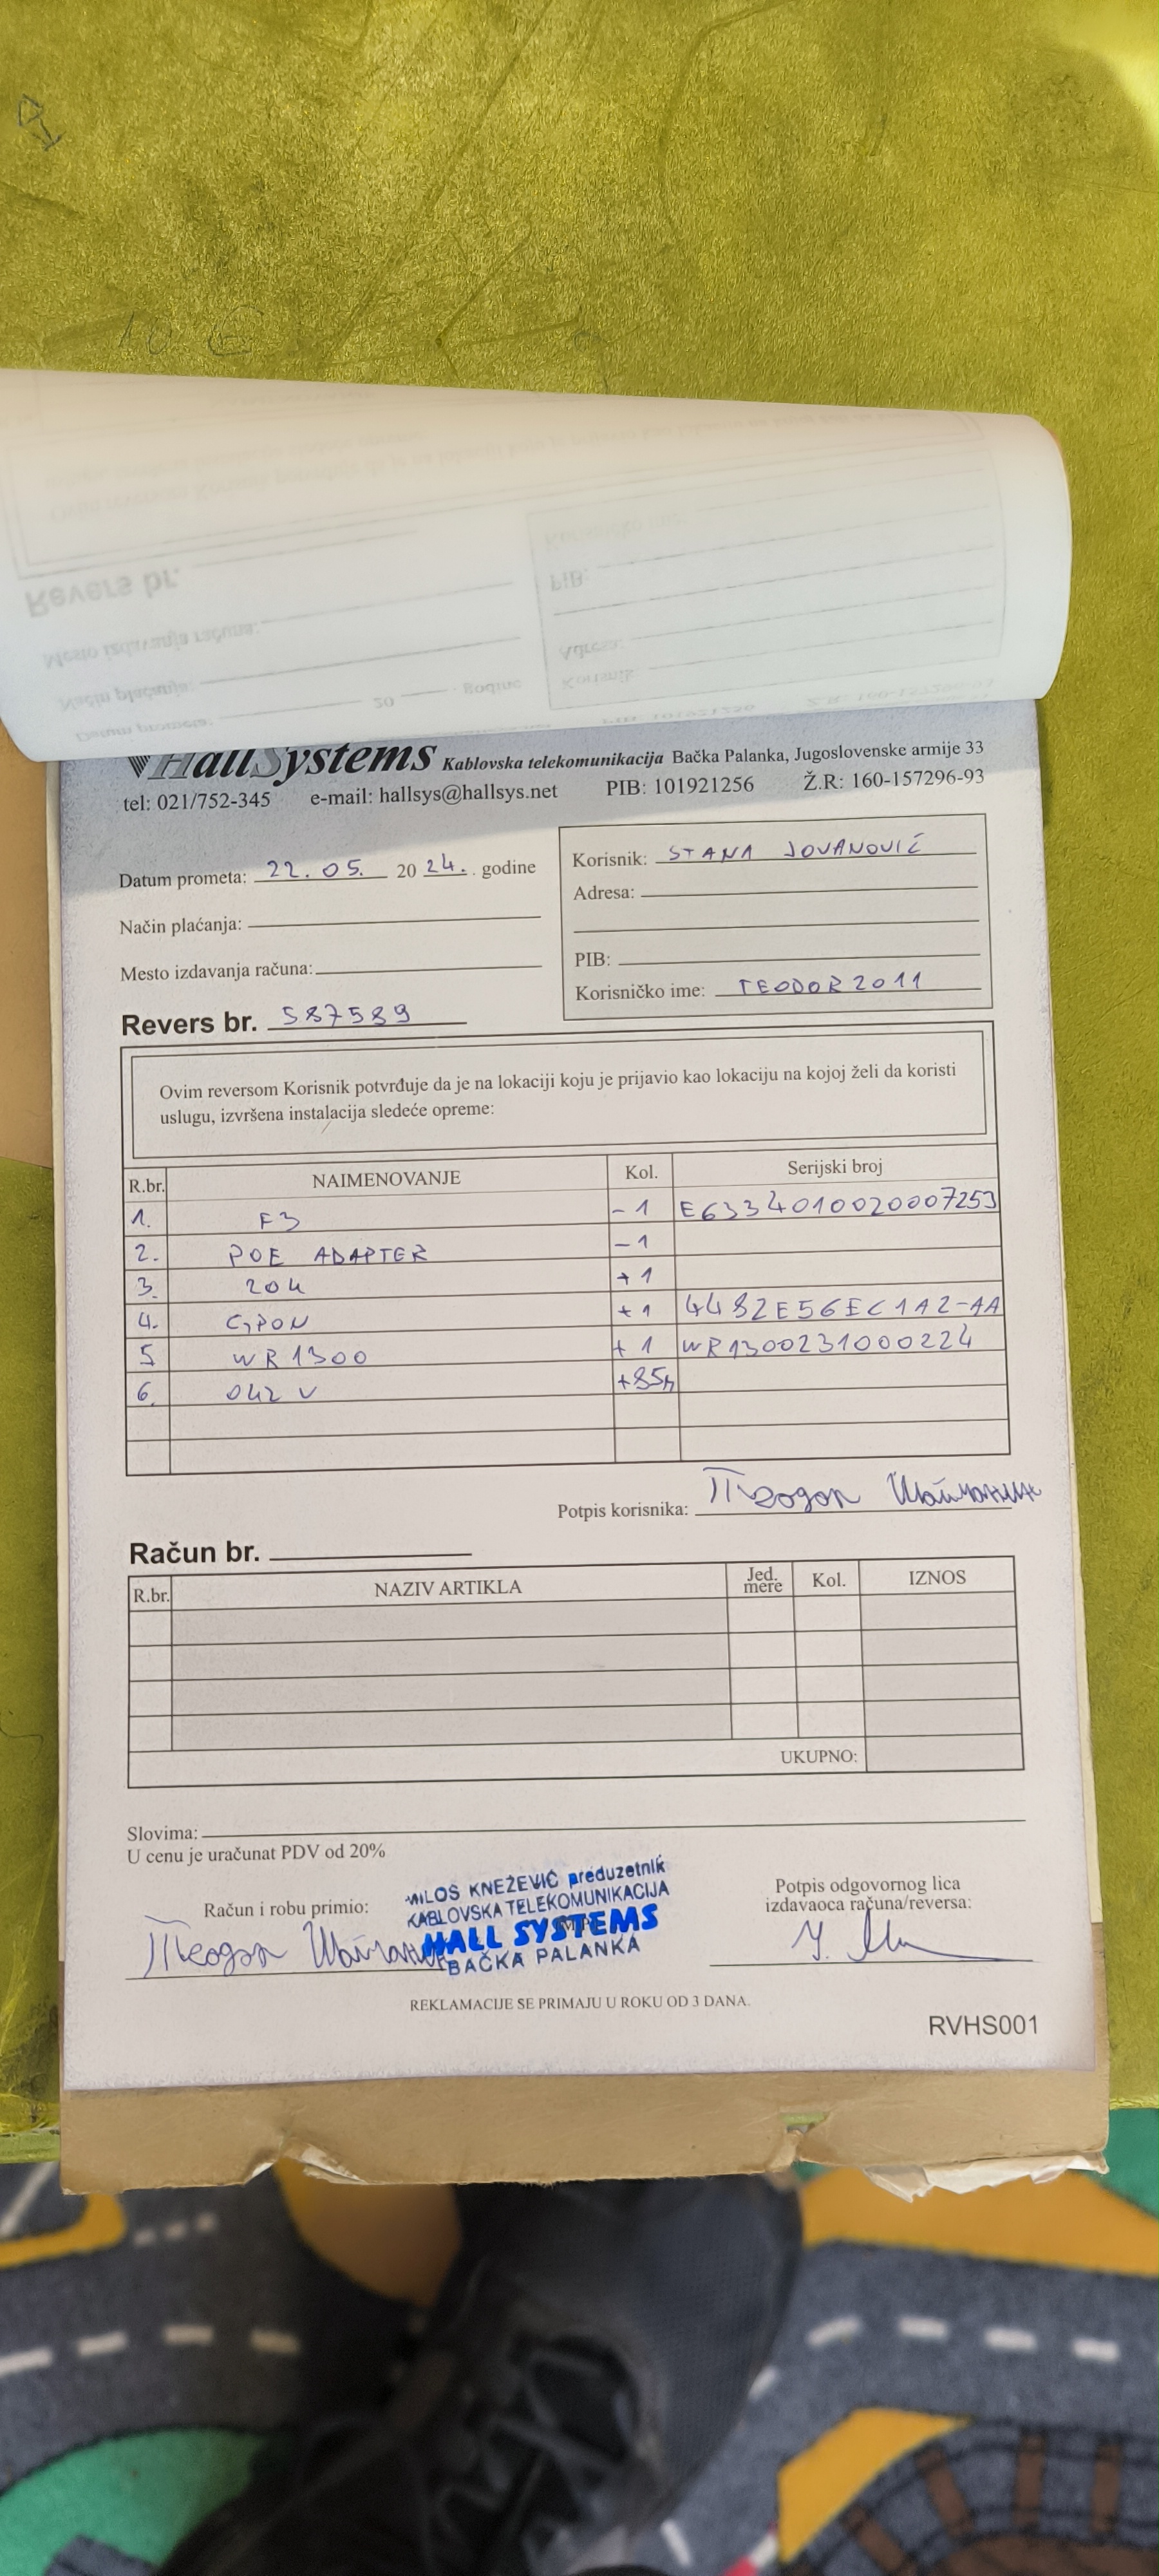 HallSystems Kablovska telekomunikacija Bačka Palanka, Jugoslovenske armije 33
tel: 021/752-345 e-mail: hallsys@hallsys.net PIB: 101921256 Ž.R: 160-157296-93
Datum prometa: 22. 05. 20 24. . godine
Način plaćanja:
Mesto izdavanja računa:
Revers br. 587589
Korisnik: STANA JOVANOVIĆ
Adresa:
PIB:
Korisničko ime: TEODOR2011
Ovim reversom Korisnik potvrđuje da je na lokaciji koju je prijavio kao lokaciju na kojoj želi da koristi
uslugu, izvršena instalacija sledeće opreme:
R.br. NAIMENOVANJE Kol. Serijski broj
1. F3 -1 E6334010020007253
2. POE ADAPTER -1
3. 204 +1
4. GPON +1 4482E56EC1A2-AA
5 WR1300 +1 WR1300231000224
6. O42V +85m
Potpis korisnika:
Račun br.
R.br. NAZIV ARTIKLA Jed. mere Kol. IZNOS
UKUPNO:
Slovima:
U cenu je uračunat PDV od 20%
Račun i robu primio:
MILOŠ KNEŽEVIĆ preduzetnik
KABLOVSKA TELEKOMUNIKACIJA
HALL SYSTEMS
BAČKA PALANKA
Potpis odgovornog lica
izdavaoca računa/reversa:
REKLAMACIJE SE PRIMAJU U ROKU OD 3 DANA.
RVHS001